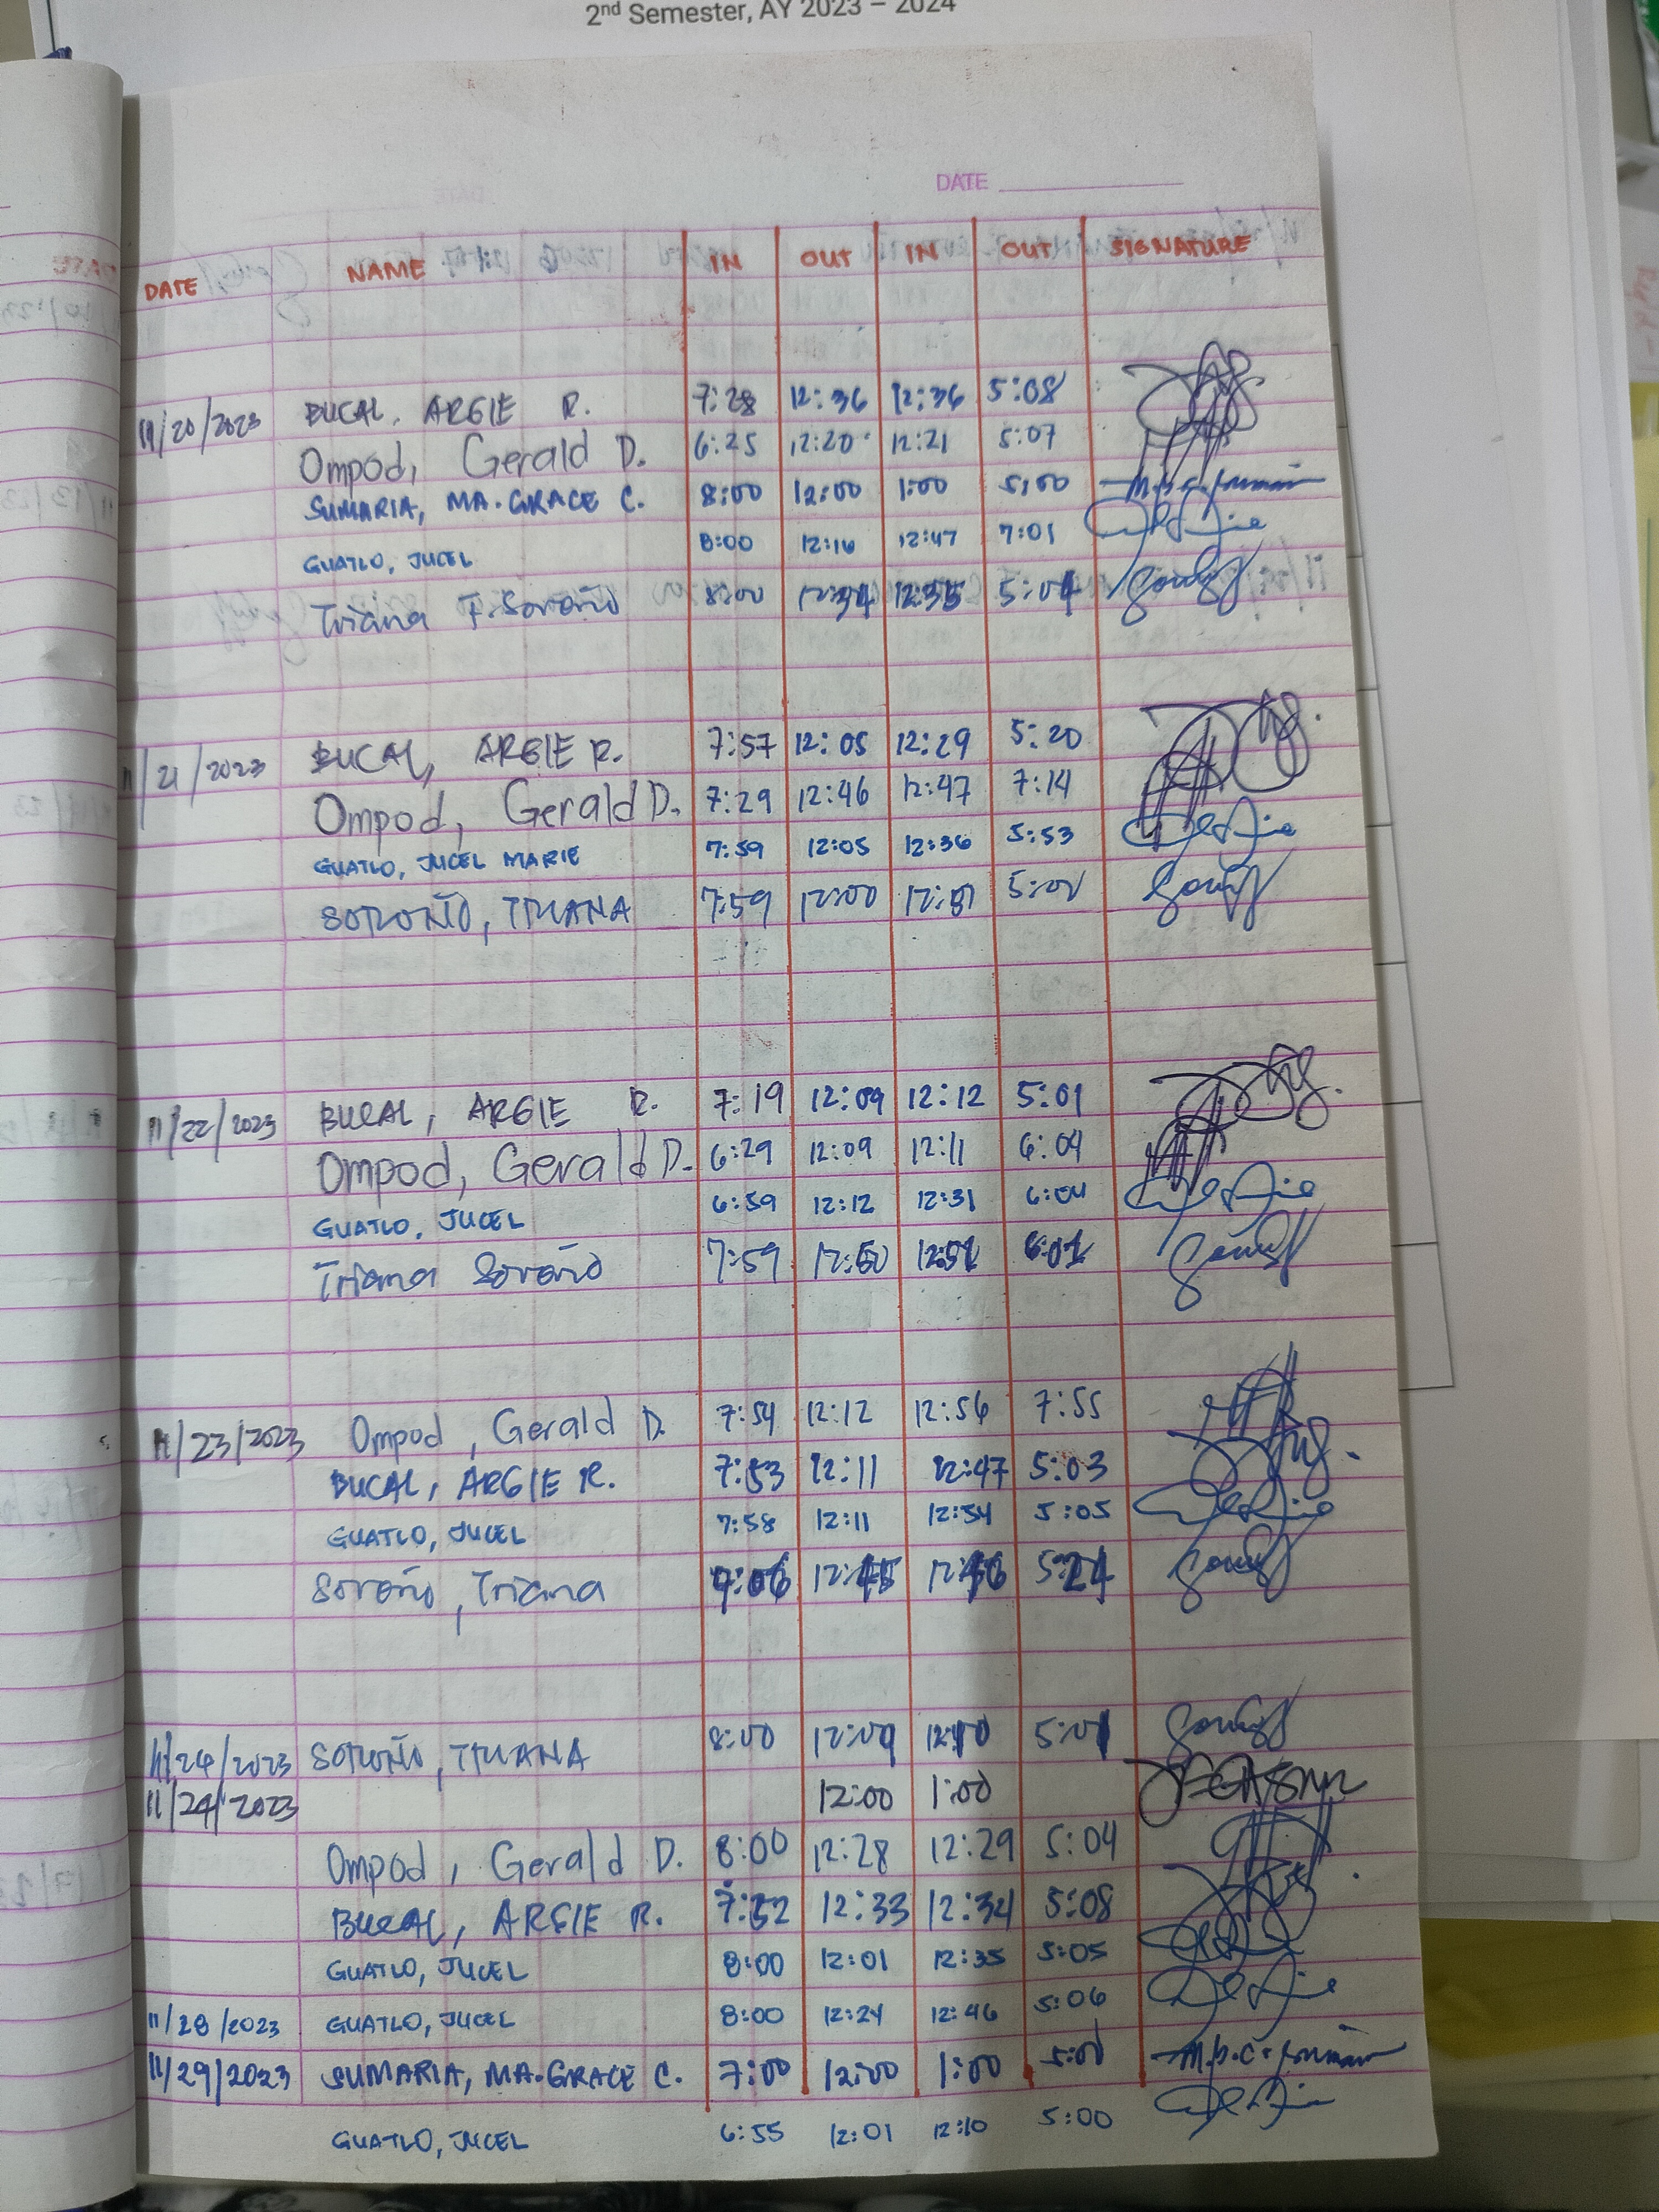 2nd Semester, AY 2023 – 2024
DATE
DATE NAME IN OUT IN OUT SIGNATURE
11/20/2023 BUCAL, ARGIE R. 7:28 12:36 12:36 5:08
Ompod, Gerald D. 6:25 12:20 12:21 5:07
SUMARIA, MA. GRACE C. 8:00 12:00 1:00 5:00
GUATLO, JUCEL 8:00 12:16 12:47 7:01
Triana F. Soroño 8:00 12:34 12:35 5:04
11/21/2023 BUCAL, ARGIE R. 7:57 12:05 12:29 5:20
Ompod, Gerald D. 7:29 12:46 12:47 7:14
GUATLO, JUCEL MARIE 7:59 12:05 12:36 5:53
SOROÑO, TRIANA 7:59 12:00 12:01
11/22/2023 BUCAL, ARGIE R. 7:19 12:09 12:12 5:01
Ompod, Gerald D. 6:29 12:09 12:11 6:04
GUATLO, JUCEL 6:59 12:12 12:31 6:04
Triana Soroño 7:59 12:50
11/23/2023 Ompod, Gerald D. 7:54 12:12 12:56 7:55
BUCAL, ARGIE R. 7:53 12:11 12:47 5:03
GUATLO, JUCEL 7:58 12:11 12:54 5:05
Soroño, Triana 12:45 12:46 5:24
11/24/2023 SOROÑO, TRIANA 8:00 12:09 12:10 5:01
11/24/2023 12:00 1:00
Ompod, Gerald D. 8:00 12:28 12:29 5:04
BUCAL, ARGIE R. 7:52 12:33 12:34 5:08
GUATLO, JUCEL 8:00 12:01 12:35 5:05
11/28/2023 GUATLO, JUCEL 8:00 12:24 12:46 5:06
11/29/2023 SUMARIA, MA. GRACE C. 7:00 12:00 1:00
GUATLO, JUCEL 6:55 12:01 12:10 5:00